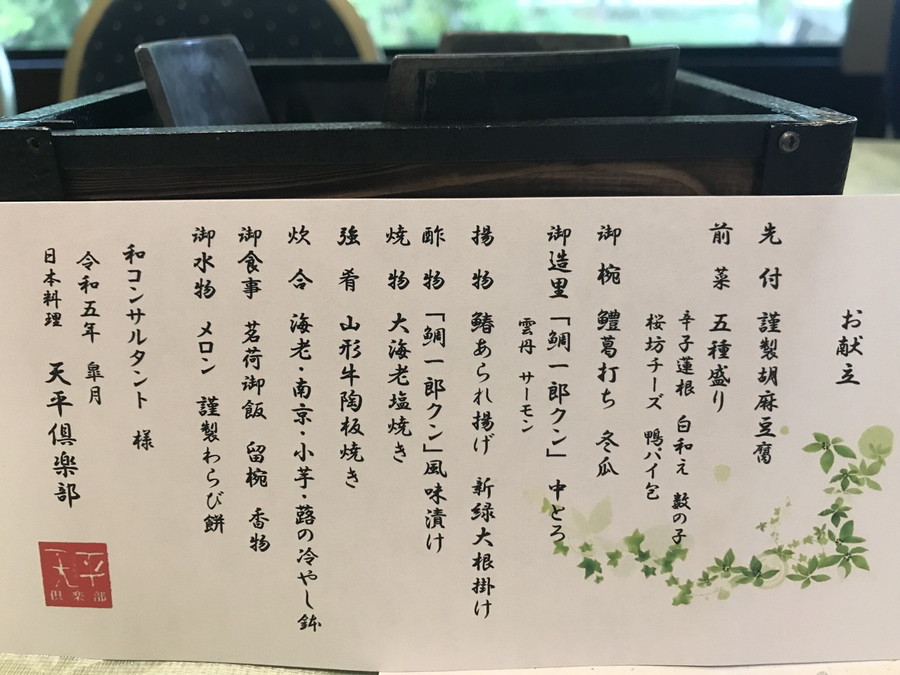 お献立
先付 謹製胡麻豆腐
前菜 五種盛り
辛子蓮根 白和え 数の子
桜坊チーズ 鴨パイ包
御椀 鱧葛打ち 冬瓜
御造里 「鯛一郎クン」 中とろ
雲丹 サーモン
揚物 鰆あられ揚げ 新緑大根掛け
酢物 「鯛一郎クン」風味漬け
焼物 大海老塩焼き
強肴 山形牛陶板焼き
炊合 海老・南京・小芋・蕗の冷やし鉢
御食事 茗荷御飯 留椀 香物
御水物 メロン 謹製わらび餅
和コンサルタント 様
令和五年 皐月
日本料理 天平倶楽部
倶楽部